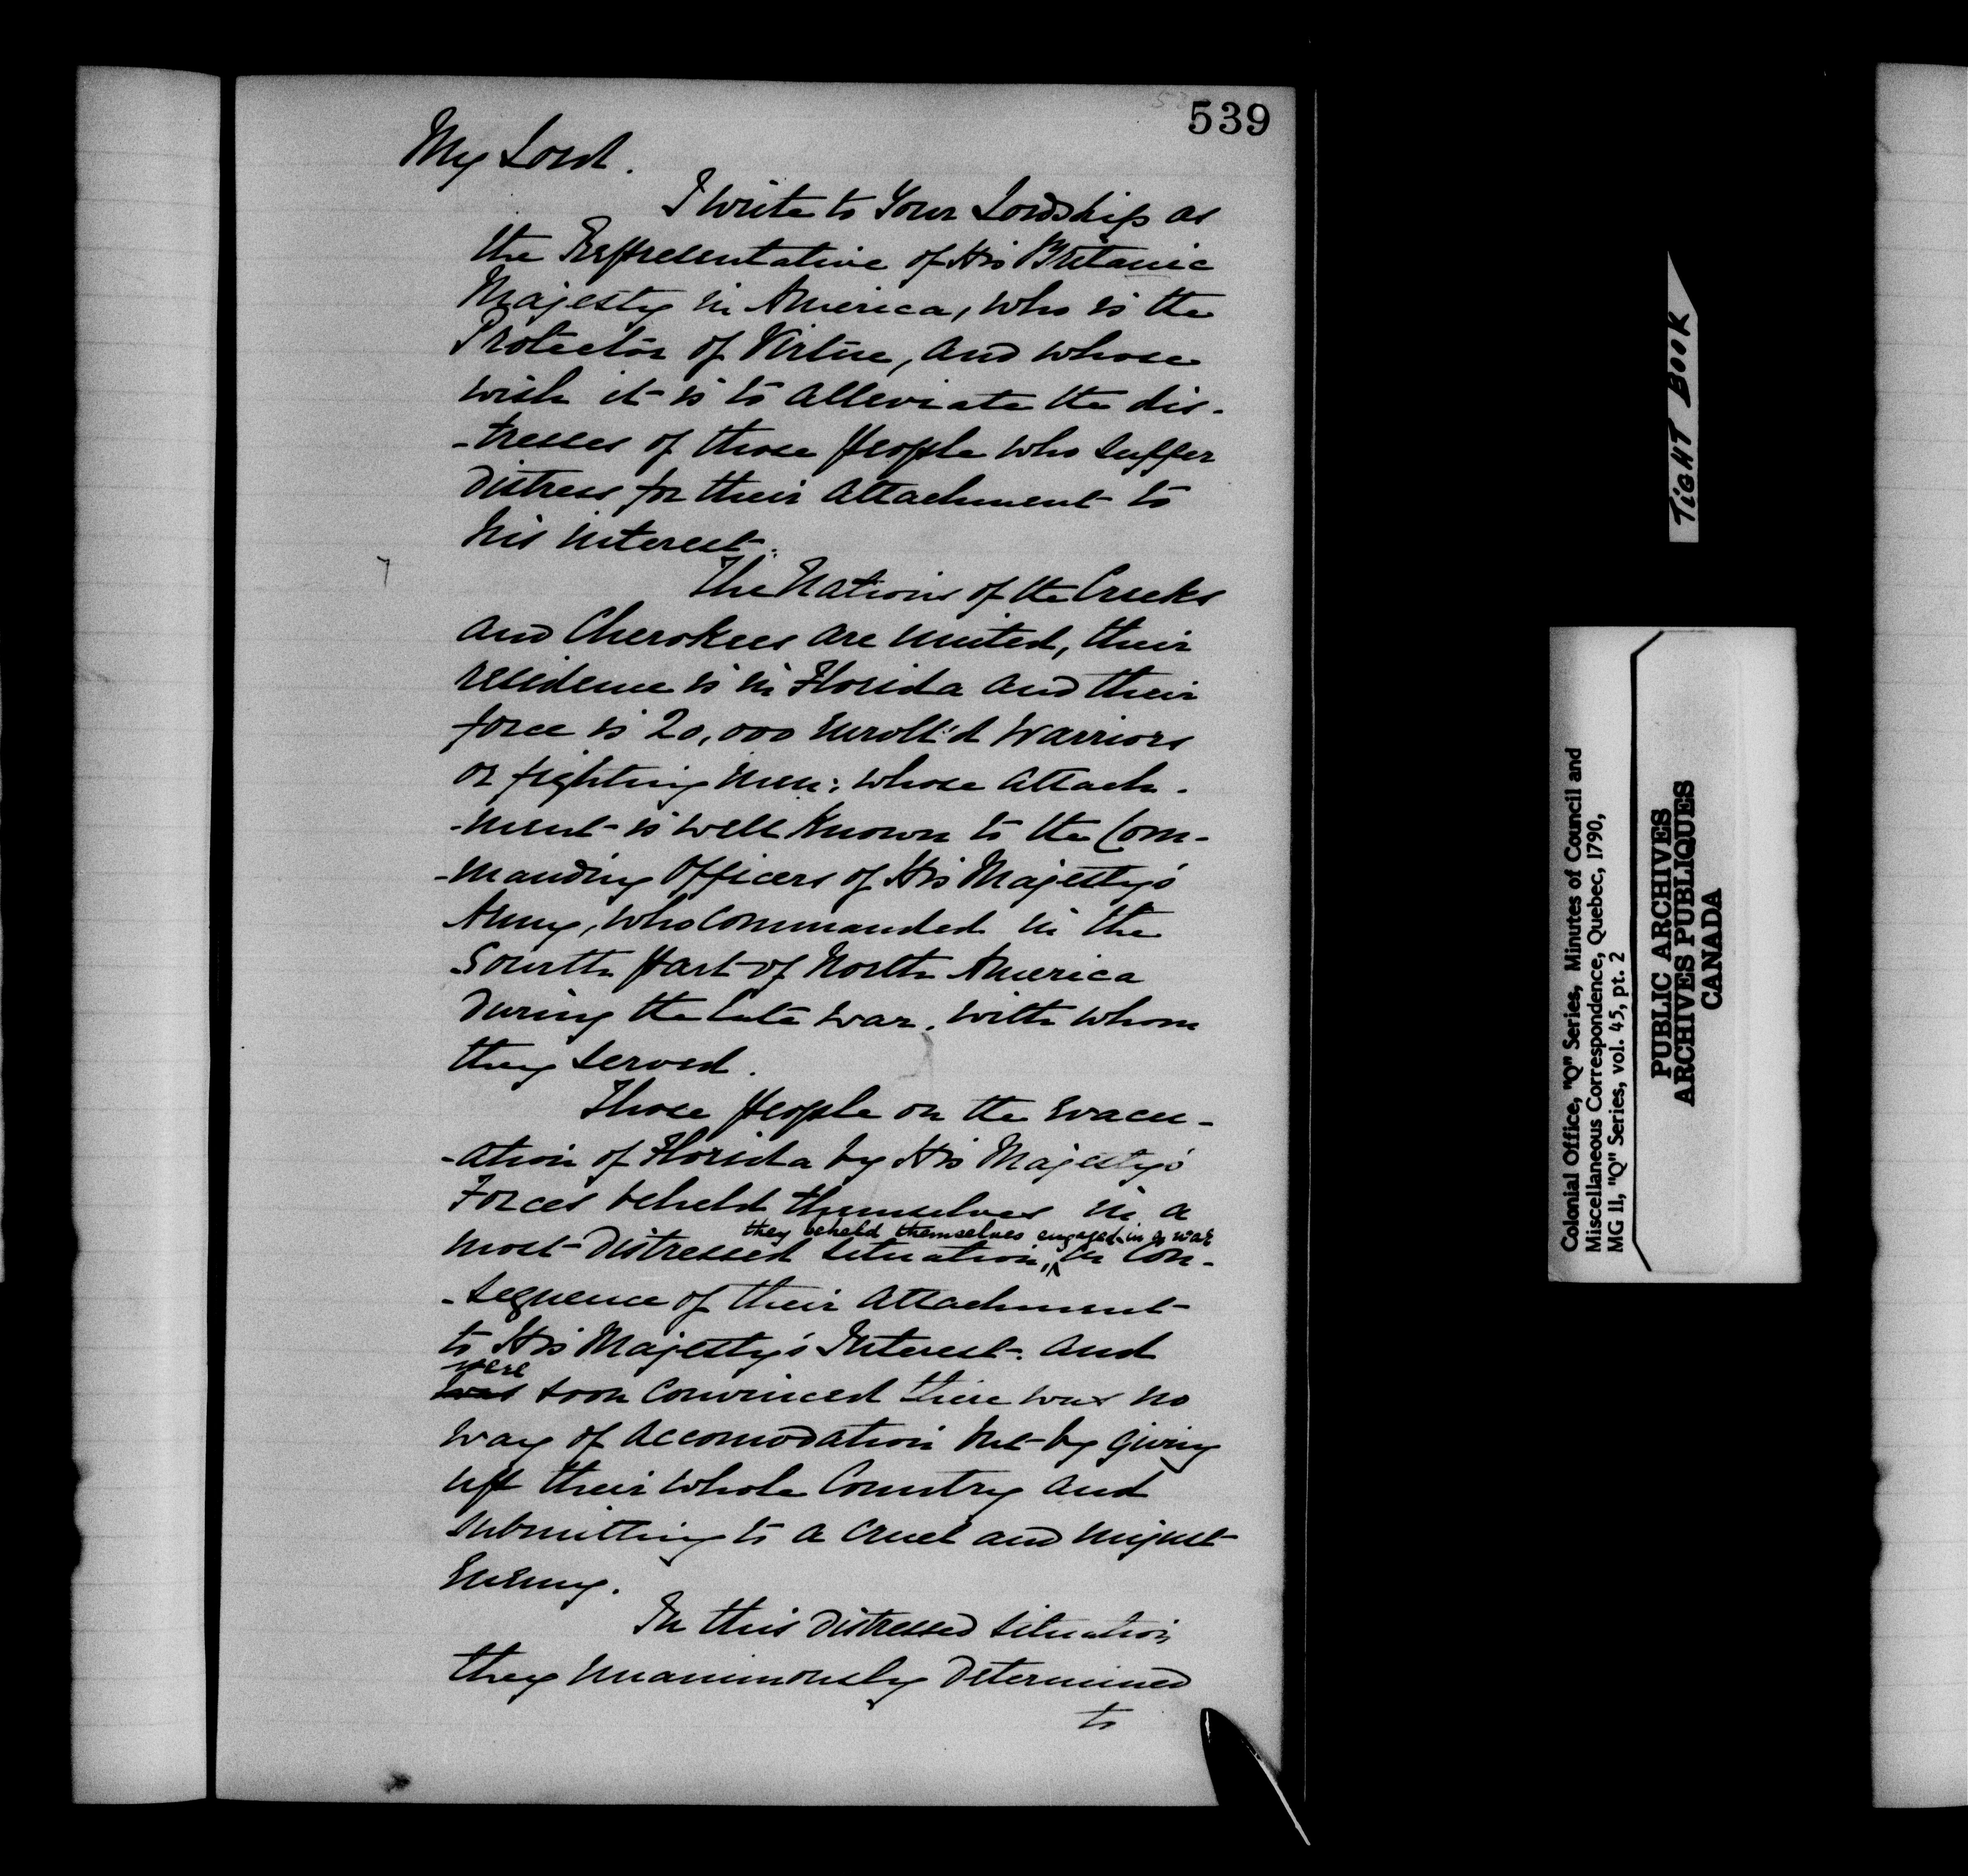 539
My Lord.
I write to Your Lordship as
the Representative of His Britanic
Majesty in America, who is the
Protector of Virtue, and whose
wish it is to alleviate the dis-
-tresses of those people who suffer
distress for their attachment to
his interest.
The Nations of the Creeks
and Cherokees are united, their
residence is in Florida and their
force is 20,000 enroll'd Warriors
or fighting men; whose attach-
-ment is well known to the Com-
-manding Officers of His Majesty's
Army, who commanded in the
South part of North America
during the late war, with whom
they served.
Those people on the evacu-
-ation of Florida by His Majesty's
Forces beheld themselves in a
they beheld themselves engaged in a war
most distressed situation, in con-
-sequence of their attachment
to His Majesty's Interest. and
were
was soon convinced there was no
way of accomodation but by giving
up their whole Country and
submitting to a cruel and unjust
Enemy.
In this distressed situation
they unanimously determined
to
TIGHT BOOK
Colonial Office, "Q" Series, Minutes of Council and
Miscellaneous Correspondence, Quebec, 1790,
MG 11, "Q" Series, vol. 45, pt. 2
PUBLIC ARCHIVES
ARCHIVES PUBLIQUES
CANADA